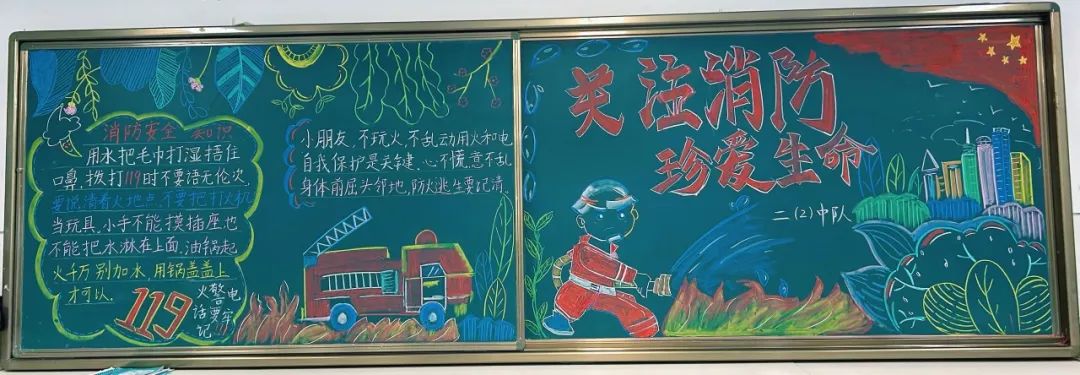 消防安全 知识
用水把毛巾打湿捂住
口鼻，拨打119时不要语无伦次，
要说清着火地点，不要把打火机
当玩具，小手不能摸插座，也
不能把水淋在上面，油锅起
火千万别加水，用锅盖盖上
才可以。
119
火警电
话要牢
记
小朋友，不玩火，不乱动用火和电
自我保护是关键，心不慌意不乱
身体前屈头邻地，防火逃生要记清。
关注消防
珍爱生命
二（2）中队